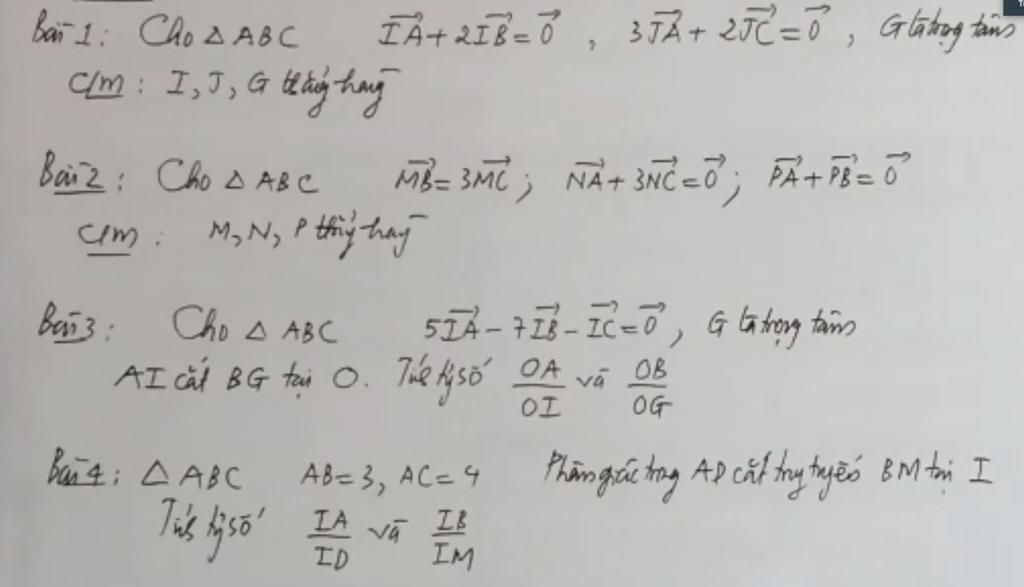 Bài 1: Cho △ABC $\overrightarrow{IA}+2\overrightarrow{IB}=\overrightarrow{0}$, $3\overrightarrow{JA}+2\overrightarrow{JC}=\overrightarrow{0}$, G là trọng tâm
C/m: I, J, G thẳng hàng
Bài 2: Cho △ABC $\overrightarrow{MB}=3\overrightarrow{MC}$; $\overrightarrow{NA}+3\overrightarrow{NC}=\overrightarrow{0}$; $\overrightarrow{PA}+\overrightarrow{PB}=\overrightarrow{0}$
C/m: M, N, P thẳng hàng
Bài 3: Cho △ABC $5\overrightarrow{IA}-7\overrightarrow{IB}-\overrightarrow{IC}=\overrightarrow{0}$, G là trọng tâm
AI cắt BG tại O. Tính tỷ số $\frac{OA}{OI}$ và $\frac{OB}{OG}$
Bài 4: △ABC AB=3, AC=4 Phân giác trong AD cắt trung tuyến BM tại I
Tính tỷ số $\frac{IA}{ID}$ và $\frac{IB}{IM}$